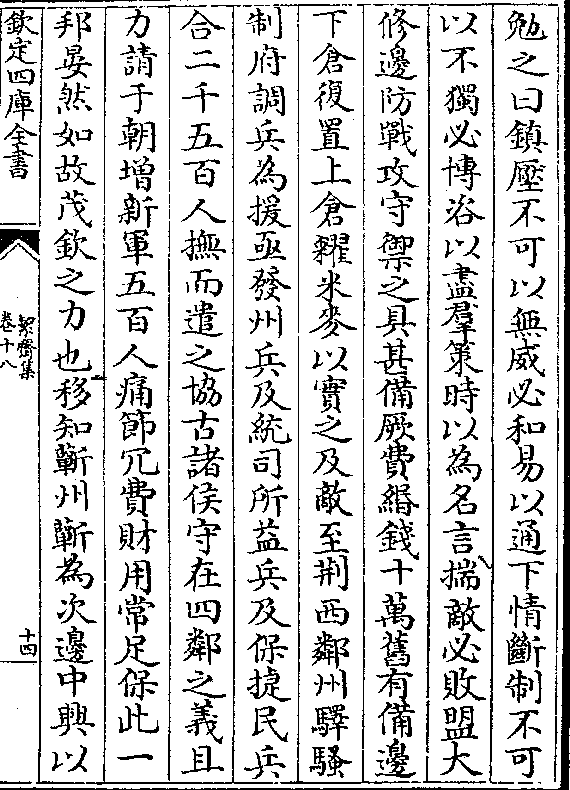 勉之曰鎮壓不可以無威必和易以通下情斷制不可
以不獨必博洽以盡羣策時以為名言揣敵必敗盟大
修邊防戰攻守禦之具甚備厥費緡錢十萬舊有備邊
下倉復置上倉糴米麥以實之及敵至荆西鄰州驛騷
制府調兵為援亟發州兵及統司所益兵及保捷民兵
合二千五百人撫而遣之協古諸侯守在四鄰之義且
力請于朝增新軍五百人痛節冗費財用常足保此一
邦晏然如故茂欽之力也移知蘄州蘄為次邊中興以
欽定四庫全書
絜齋集
卷十八
十四